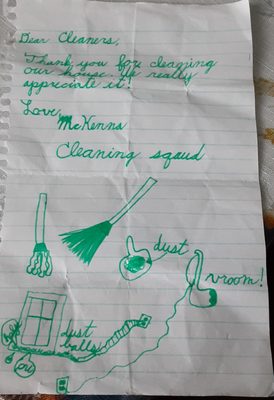 Dear Cleaners,
Thank you for cleaning
our house. We really
appriciate it!
Love,
McKenna
Cleaning sqaud
dust
vroom!
dust
balls